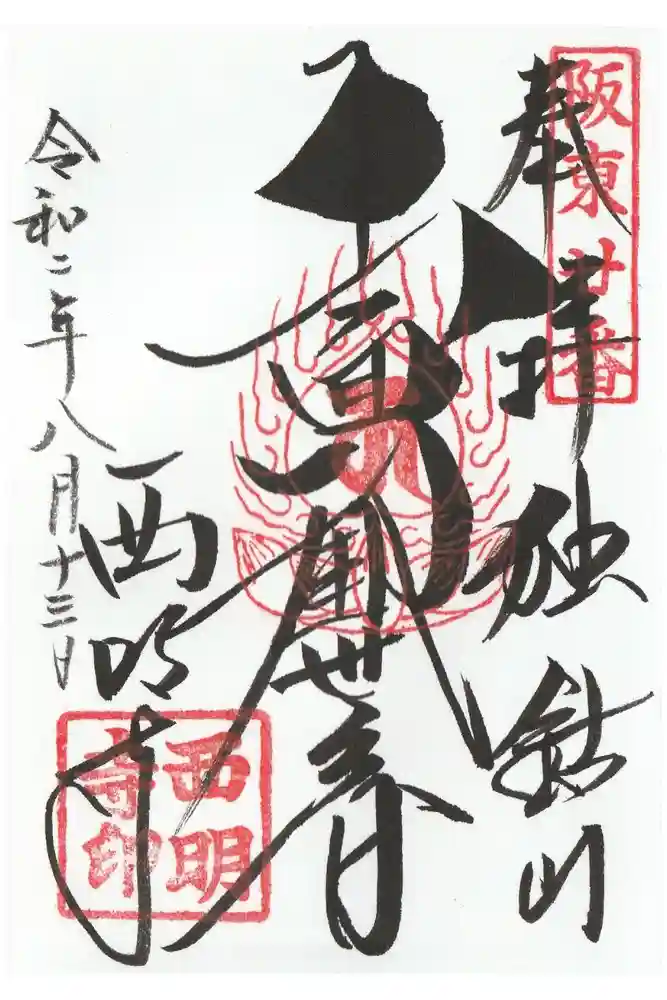 阪東廿番
奉拝 独鈷山
十一面観世音
西明寺
西明寺印
令和二年八月十三日